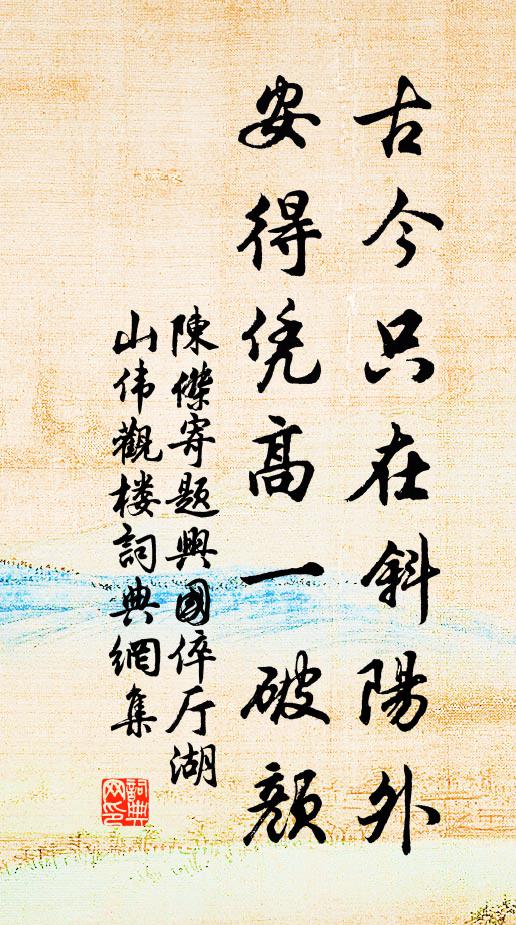 古今只在斜陽外
安得凭高一破顏
陳傑寄題興國倅厅湖
山伟觀楼詞典網集
詞典
网印